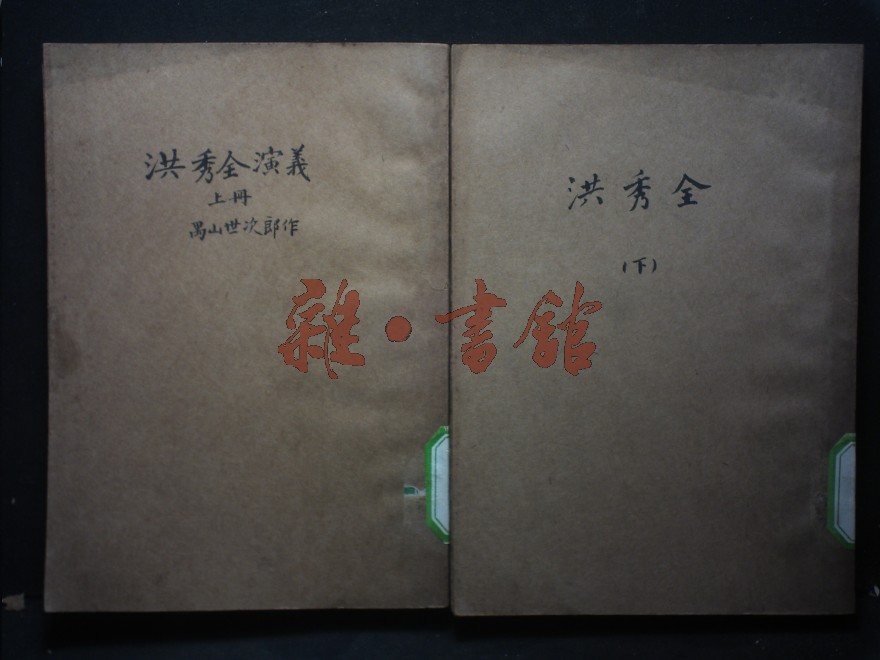 洪秀全演義
上冊
禺山世次郎作
洪秀全
(下)
雜·書館